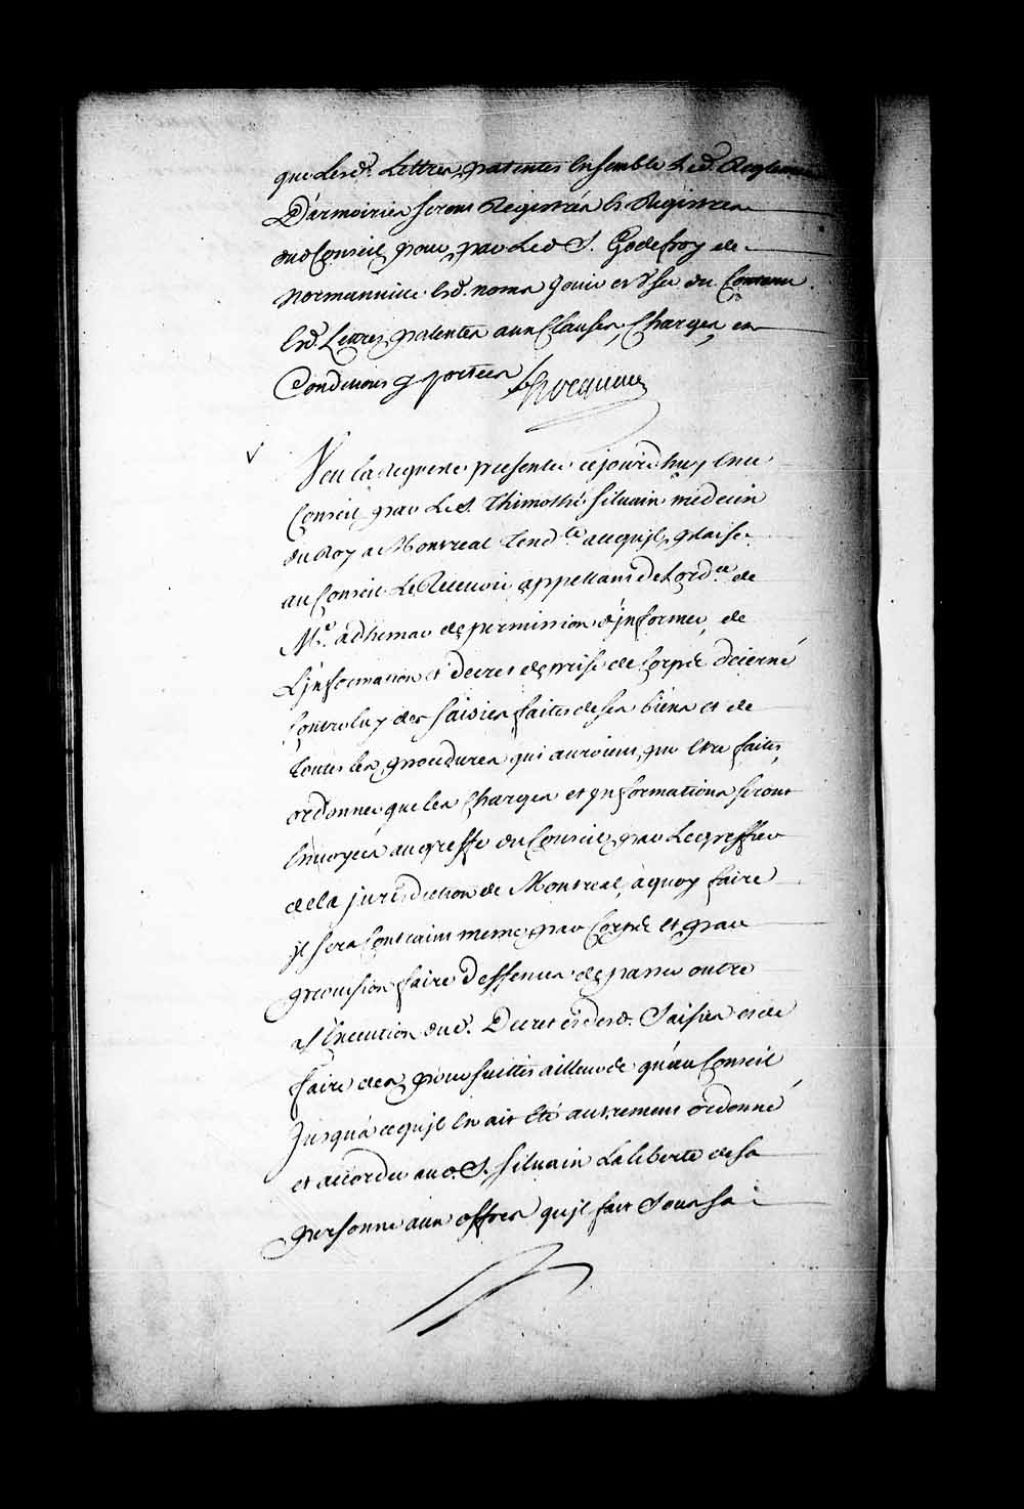 que lesd. Lettres patentes Ensemble Led. Reglement
D'armoiries seront Registrés Es Registres
dud Conseil pour par Led S. Godefroy de
Normanville Esd. noms Jouir et User du Contenu
Esd. Lettres patentes aux Clauses, Charges, et
Conditions y portées
Veu la Requete presentée cejourd'huy En ce
Conseil par Le S. Thimothé Silvain medecin
du Roy a Montreal Tend.te a ce qu'jl plaise
au Conseil Le Recevoir appellant de Lord.ce de
M.e adhemar de permission d'jnformer, de
L'jnformation et decret de prise de Corps decerné
Contre luy des saisies faites de ses biens et de
Toutes les procedures qui auroient pu Etre faites,
ordonner que les Charges et jnformations seront
Envoyées au greffe du Conseil par Le greffier
de la jurisdiction de Montreal, à quoy faire
jl sera Contraint meme par Corps et par
provision faire deffenses de passer outre
a l'Execution dud. Decret et desd. Saisies et de
faire des poursuittes ailleurs qu'au Conseil
Jusqu'a ce qu'jl En ait Eté autrement ordonné
et accorder aud. S. Silvain La liberté de sa
personne aux offres qu'jl fait Sous sa